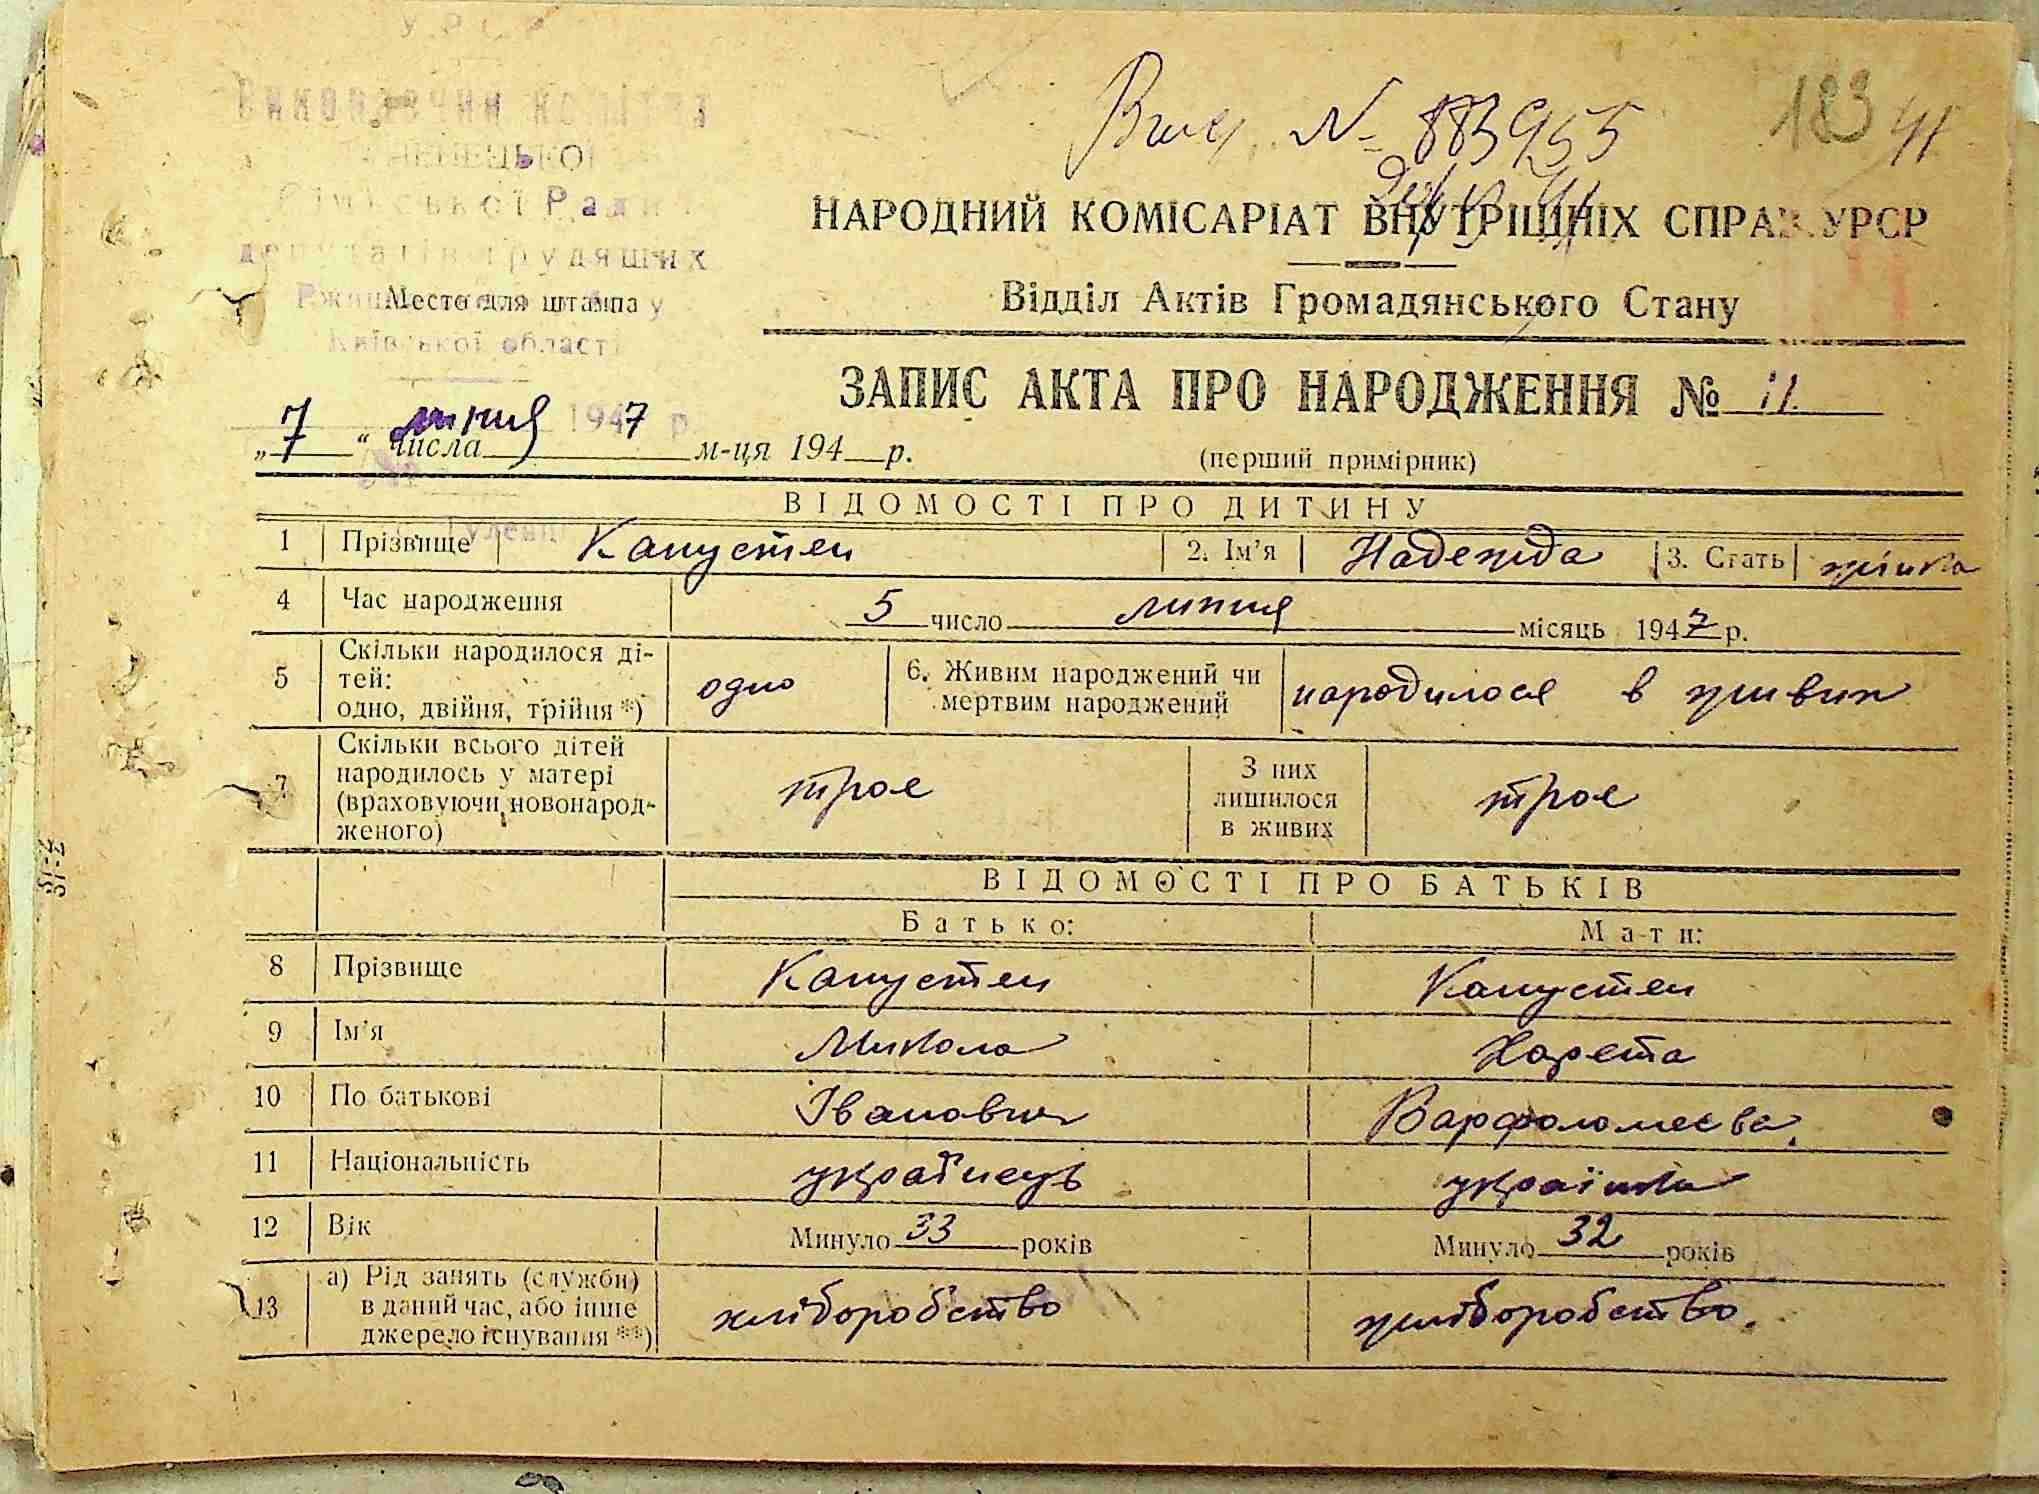 УРСР
Виконавчий комітет
Сільської Ради
депутатів трудящих
Место для штампа
Київської області
№ 883955
183 41
НАРОДНИЙ КОМІСАРІАТ ВНУТРІШНІХ СПРАВ УРСР
Відділ Актів Громадянського Стану
ЗАПИС АКТА ПРО НАРОДЖЕННЯ № 11.
1947 р.
„7“ числа липня м-ця 194 р.
(перший примірник)
ВІДОМОСТІ ПРО ДИТИНУ
1 Прізвище Капустен 2. Ім'я Надежда 3. Стать жінка
4 Час народження 5 число липня місяць 1947 р.
5 Скільки народилося ді-
тей:
одно, двійня, трійня *) одно 6. Живим народжений чи
мертвим народжений народилося в живих
7 Скільки всього дітей
народилось у матері
(враховуючи новонарод-
женого) трое З них
лишилося
в живих трое
ВІДОМОСТІ ПРО БАТЬКІВ
Батько: Мати:
8 Прізвище Капустен Капустен
9 Ім'я Микола
10 По батькові Іванович Варфоломеєва.
11 Національність українець українка
12 Вік Минуло 33 років Минуло 32 років
13 а) Рід занять (служби)
в даний час, або інше
джерело існування **) хліборобство хліборобство.